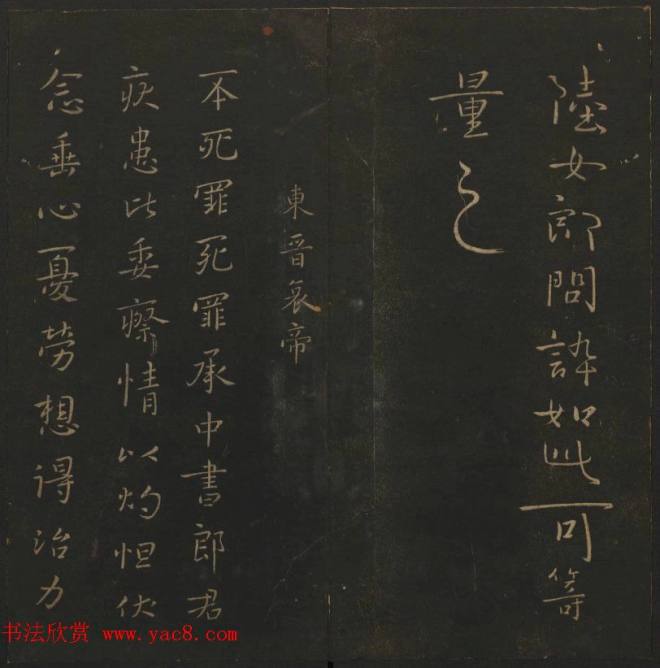 陸女郎問訃如此可等
量之
東晉哀帝
一不死罪死罪承中書郎君
疾患比委瘵情以灼怛伏
念垂心憂勞想得治力
书法欣赏 www.yac8.com